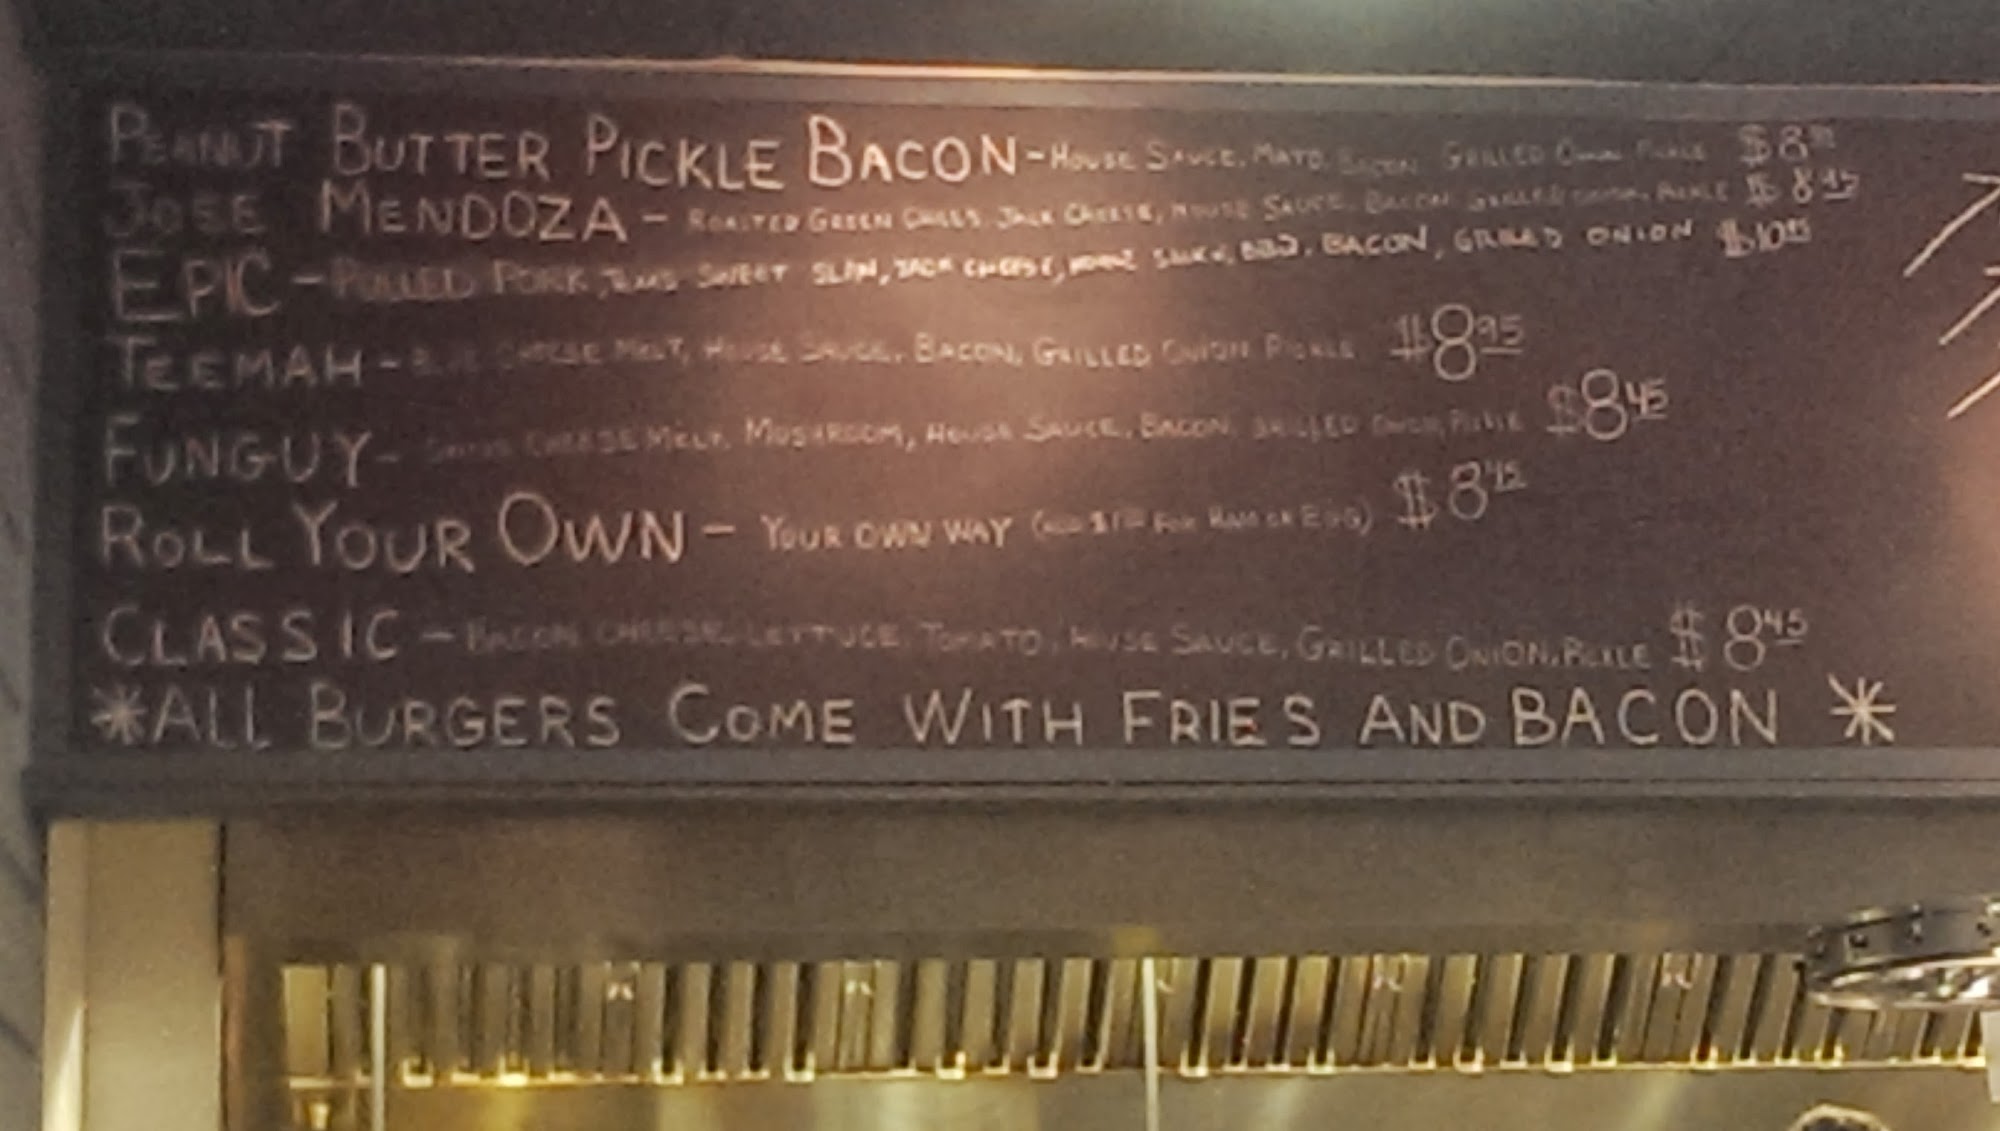 PEANUT BUTTER PICKLE BACON - HOUSE SAUCE, MAYO, BACON, GRILLED ONION, PICKLE $8
JOSE MENDOZA - ROASTED GREEN CHILES, JACK CHEESE, HOUSE SAUCE, BACON, GRILLED ONION, PICKLE $8.45
EPIC - PULLED PORK, SWEET SLAW, JACK CHEESE, HOUSE SAUCE, BBQ, BACON, GRILLED ONION $10
TEEMAH - BLUE CHEESE MELT, HOUSE SAUCE, BACON, GRILLED ONION PICKLE $8 95
FUNGUY - SWISS CHEESE MELT, MUSHROOM, HOUSE SAUCE, BACON, GRILLED ONION, PICKLE $8 45
ROLL YOUR OWN - YOUR OWN WAY (ADD FOR HAM OR EGG) $8 45
CLASSIC - BACON CHEESE, LETTUCE, TOMATO, HOUSE SAUCE, GRILLED ONION, PICKLE $8 45
*ALL BURGERS COME WITH FRIES AND BACON *